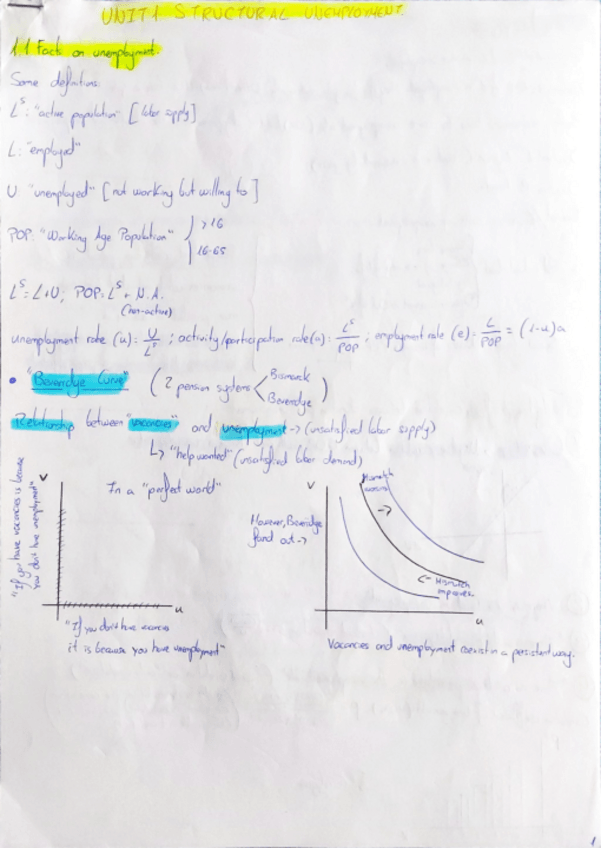 UNIT 1 STRUCTURAL UNEMPLOYMENT.
1.1 Facts on unemployment.
Some definitions:
L^S: "active population" [labor supply]
L: "employed"
U: "unemployed" [not working but willing to]
POP: "Working Age Population" >16
16-65
L^S = L+U; POP = L^S + N.A.
(non-active)
unemployment rate (u) = U/L^S ; activity/participation rate (a) = L^S/POP ; employment rate (e) = L/POP = (1-u)a
• "Beveridge Curve" ( 2 pension systems < Bismarck
Beveridge )
Relationship between "vacancies" and unemployment -> (unsatisfied labor supply)
↳ "help wanted" (unsatisfied labor demand)
"If you have vacancies is because
you don't have unemployment"
V
In a "perfect world"
u
"If you don't have vacancies
it is because you have unemployment"
V
However, Beveridge
found out ->
Mismatch
worsens
->
<- Mismatch
improves.
u
Vacancies and unemployment coexist in a persistent way.
1